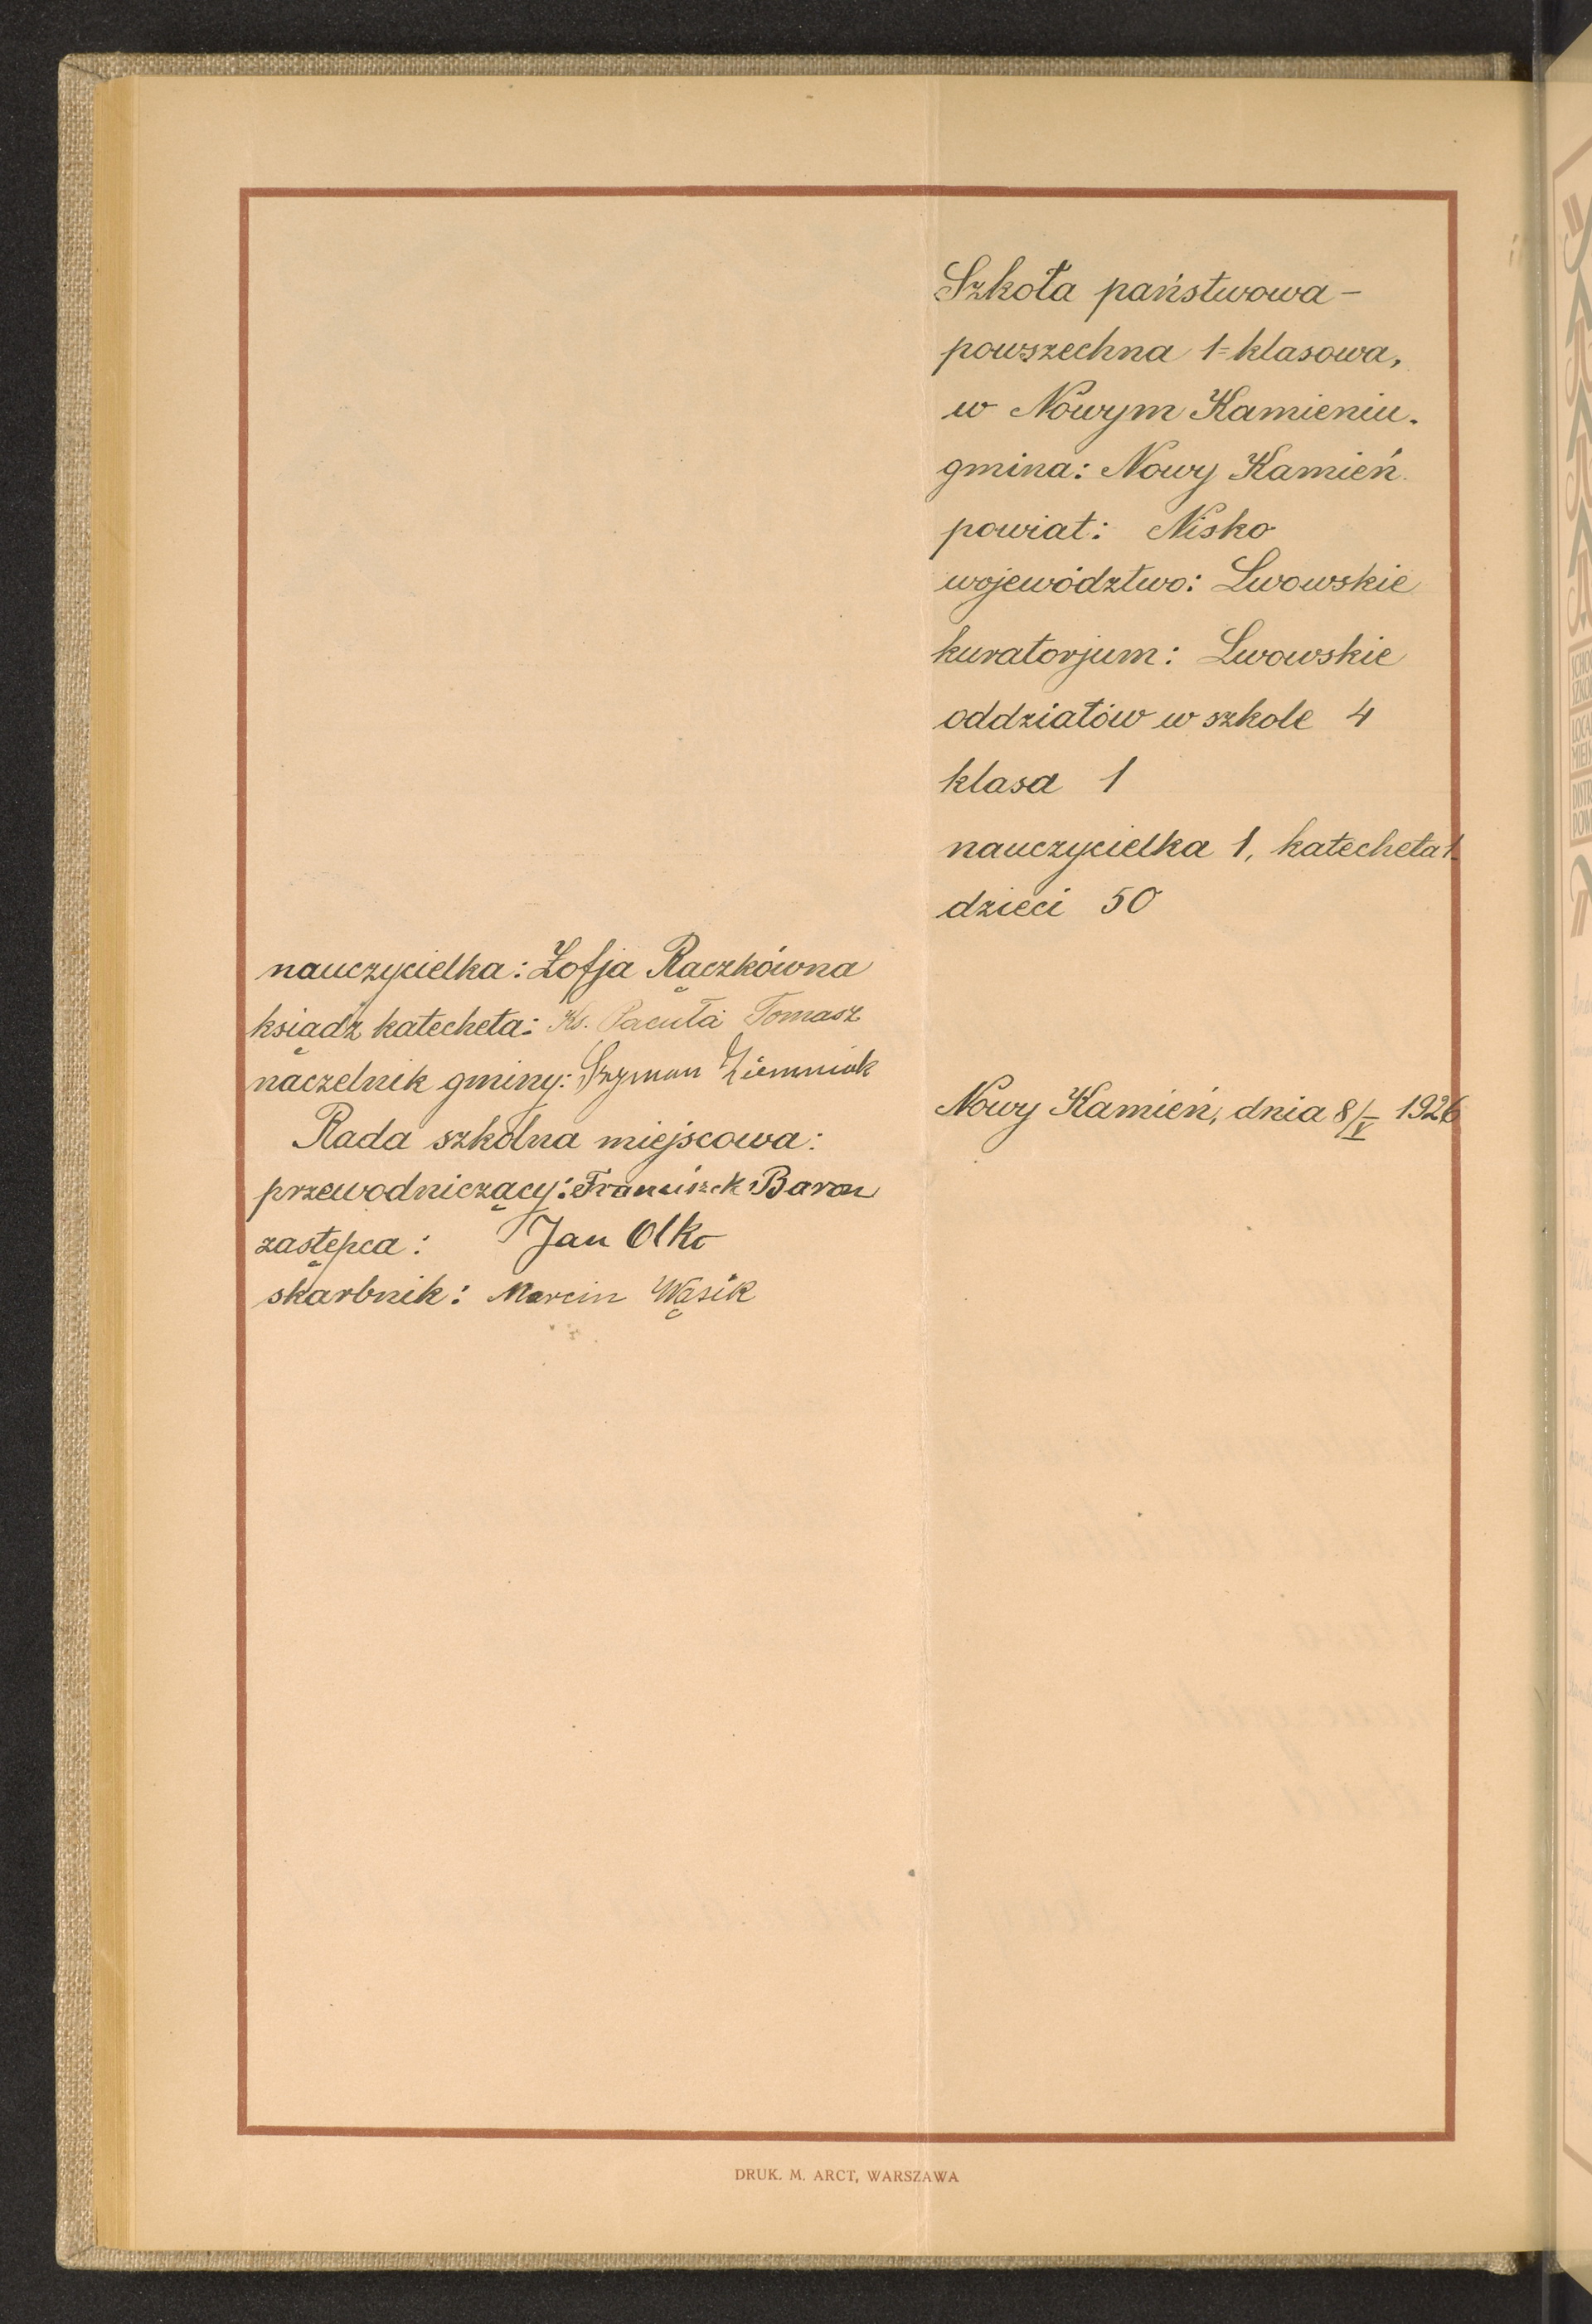 Szkoła państwowa-
powszechna 1-klasowa,
w Nowym Kamieniu.
gmina: Nowy Kamień.
powiat: Nisko
województwo: Lwowskie
kuratorjum: Lwowskie
oddziałów w szkole 4
klasa 1
nauczycielka 1, katecheta 1.
dzieci 50
nauczycielka: Zofja Rączkówna
ksiądz katecheta: Ks. Pacuła Tomasz
naczelnik gminy: Szymon Ziemniak
Rada szkolna miejscowa:
przewodniczący: Franciszek Baran
zastępca: Jan Olko
skarbnik: Marcin Wąsik
Nowy Kamień, dnia 8/V 1926
DRUK. M. ARCT, WARSZAWA